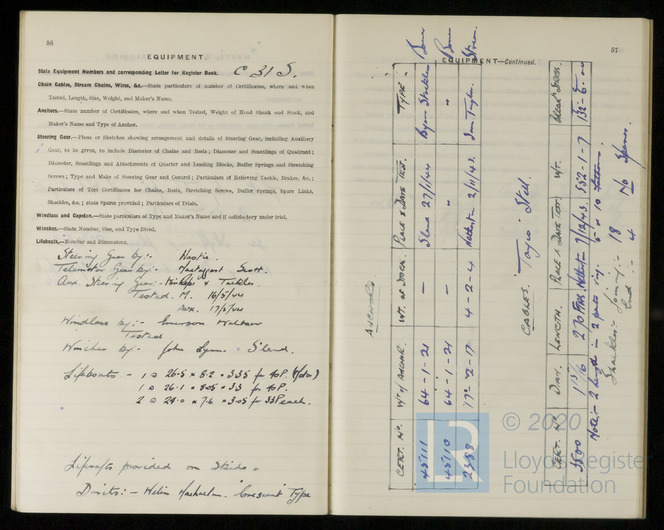 56
EQUIPMENT.
State Equipment Numbers and corresponding Letter for Register Book. C 31 S.
Chain Cables, Stream Chains, Wires, &c.—State particulars of number of Certificates, where and when
Tested, Length, Size, Weight, and Maker's Name.
Anchors.—State number of Certificates, where and when Tested, Weight of Head Shank and Stock, and
Maker's Name and Type of Anchor.
Steering Gear.—Plans or Sketches showing arrangement and details of Steering Gear, including Auxiliary
Gear, to be given, to include Diameter of Chains and Rods; Diameter and Scantlings of Quadrant;
Diameter, Scantlings and Attachments of Quarter and Leading Blocks, Buffer Springs and Stretching
Screws; Type and Make of Steering Gear and Control; Particulars of Relieving Tackle, Brakes, &c.;
Particulars of Test Certificates for Chains, Rods, Stretching Screws, Buffer Springs, Spare Links,
Shackles, &c.; state Spares provided; Particulars of Trials.
Windlass and Capstan.—State particulars of Type and Maker's Name and if satisfactory under trial.
Winches.—State Number, Size, and Type Fitted.
Lifeboats.—Number and Dimensions.
Steering Gear by:- Hastie.
Telemotor Gear by:- Mactaggart Scott.
Aux. Steering Gear:- & Tackles.
Tested. M. 16/5/44
Aux. 17/5/44
Windlass by:- Emerson Walker
Tested
Winches by:- John Lynn. S'land.
Lifeboats - 1 @ 26.5 x 8.2 x 3.35 for 40P. (Motor)
1 @ 26.1 x 8.05 x 3.3 for 40P.
2 @ 24.0 x 7.6 x 3.05 for 33P each.
Liferafts provided on Skids.
Davits:- Welin Maclachlan. Crescent Type
57
EQUIPMENT—Continued.
ANCHORS
CERT. No. Wt of ANCHOR. WT. OF STOCK. PLACE & DATE TEST. TYPE
45111 64-1-21 - S'land 27/1/44 Byers Stockless Bower
45110 64-1-21 - " " Bower
2988 17-2-17 4-2-4 Netherton 2/11/43. Stream.
CABLES. "Tayco" Steel.
CERT. No. DIAM. LENGTH. PLACE & DATE TEST WT.
3500 270 FMS. Netherton 7/12/43. 552-1-7 132-5-0
Note:- 2 lengths in 2 parts, 5 & 10
Shackles:- Joining:- 18 No Spares.
End - 4
© 2020
Lloyd's Register
Foundation